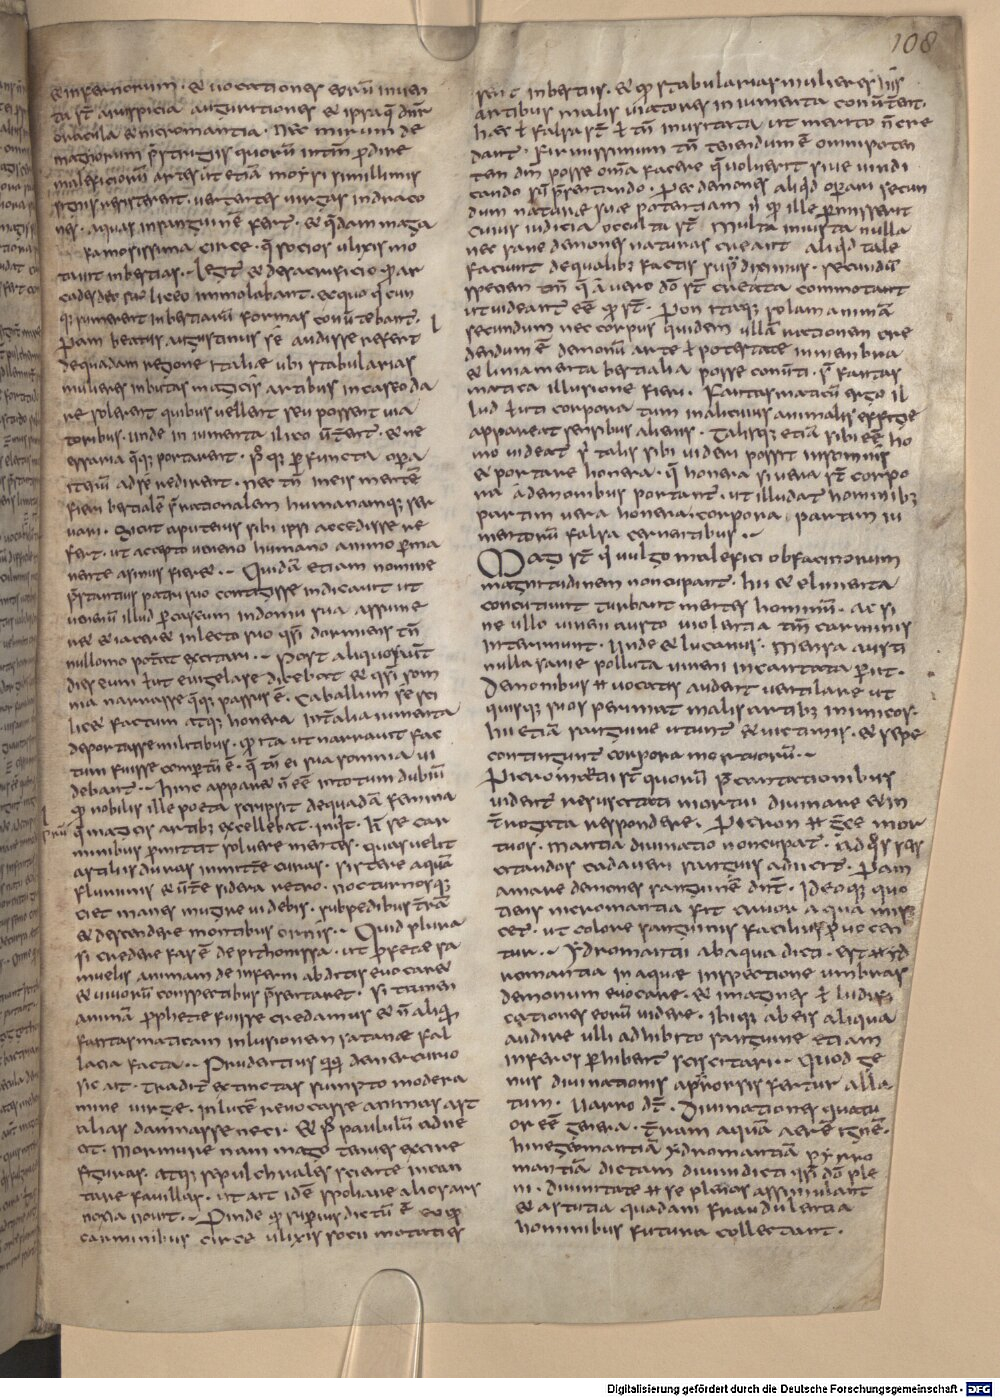 108
& infernorum · & uocationes eorū inuen
ta sт̄ auspicia auguritiones & ipsa q̄ dn̄r
oracula & nicromantia · Nec mirum de
magorum p̄stigiis quorū intm̄ p̄dire
maleficiorū artes ut etiā moysi simillimis
signis resisterent · uertentes uirgas in draco
nes · aquas in sanguinē fert̄ · & q̄dam maga
famosissima circe · q̄ socios ulixis mo
tauit in bestias · Legit̄ & de sacrificio qd̄ ar
cades deo suo liceo immolabant · ex quo q̄cun
q; sumerent in bestiarū formas conūtebant ·
Nam beatus augustinus sē audisse refert
de quadam regione italiae ubi stabularias
mulieres inbutas magicis artibus in caseo da
re solerent quibus uellent seu possent uia
toribus · unde in iumenta ilico ūterent̄ · & ne
cessaria q̄q; portarent · p̄ q; pfuncta opera
iterū ad se redirent · Nec tn̄ in eis mentē
fieri bestialē s; rationalem humanamq; ser
uari · Sicut apuleius sibi ipsi accedisse re
fert · ut accepto ueneno humano animo pma
nente asinus fieret · Quidā etiam nomine
p̄stantius patri suo contigisse indicauit ut
uenenū illud p caseum in domu sua assume
ret & iacer& in lecto suo qsi dormiens tn̄
nullomo potuit excitari · Post aliquos aut̄
dies eum ut euigelasse dicebat & qsi som
nia narrasse q̄q; passus ē · Caballum se sci
lic& factum atq; honera int alia iumenta
deportasse militibus · qd ita ut narrauit fac
tum fuisse compertū ē · q̄ tn̄ ei sua somnia ui
debant̄ · hinc appar& n̄ eē in totum dubiū
qd nobilis ille poeta scripsit de quadā femina
q̄ magicis artib; excellebat · inq̄t · h se car
minibus pmittit soluere mentes · quas uelit
ast aliis duras inmitte curas · sistere aquā
fluminis & ūtere sidera retro · nocturnosq;
ciet manes mugire uidebis · sub pedibus t̄rā
& descendere montibus ornis · Quid plura
si credere fas ē de pithonissa · ut p̄fete sa
muelis animam de inferni abditis euocar&
& uiuorū conspectibus p̄sentaret · si tamen
animā p̄phete fuisse credamus & n̄ aliq̄
fantasmaticam inlusionem satanae fal
lacia facta · Prudentius quoq; de mercurio
sic ait · Tradit̄ extinctas sumpto modera
mine uirge · in lucē reuocasse animas ast
alias damnasse neci · & p̄ paululū adnec
at · Murmure nam mago tenues excire
figuras · atq; sepulchrales scierte incan
tare fauillas · ut ait idē spoliare alios ars
noxia nouit · Proinde qd superius dictū ē eo qd
carminibus circe ulixis socii motati
sunt in bestias · & qd stabulariae mulieres
artibus malis uiatores in iumenta conūterent ·
hec & falsa sт̄ & tn̄ inusitata ut merito n̄ cre
dant̄ · Firmissimum tn̄ tenendum ē omnipoten
tem dm̄ posse omīa facere q̄ uoluerit siue uindi
cando siue p̄stando · Nec demones aliqd operari secun
dum naturae suae potentiam n̄ qd ille pmiserit
cuius iudicia occulta sт̄ multa iniusta nulla
nec sane demones naturas creant aliqd tale
faciunt de qualib; factis supra diximus · secundū
speciem tn̄ q̄ a uero do sт̄ creata commotant
ut uideant̄ eē qd n̄ sт̄ · Non itaq; solam animā
secundum nec corpus quidem ullā rationem cre
dendum ē demonū arte & potestate in membra
& liniamenta bestialia posse conūti · s; fantas
matica illusione fieri · Fantasmaticū ergo il
lud & uti corporatum in alicuius animalis effigie
appareat sensibus alienis · Talisq; etiā sibi eē ho
mo uideat̄ s; talis sibi uideri possit in somnis
& portare honera · q̄ honera si uera sт̄ corpo
ra a demonibus portant̄ · ut illudat̄ hominib;
partim uera honera · corpora · partim iu
mentorū falsa cernentibus ·
Magi sт̄ q̄ uulgo malefici ob facinorum
magnitudinem noncupant̄ · hii & elimenta
concutiunt turbant mentes hominum · ac si
ne ullo ueneni austo uiolentia tm̄ carminis
interimunt · Unde & lucanus · Mens a austi
nulla sanie polluta ueneni incantata p̄it ·
Demonibus n̄ uocatis audent uentilare ut
quisq; suos perimat malis artib; inimicos ·
hii etiā sanguine utunt̄ & uictimis · & sepe
contingunt corpora mortuorū ·
Nicromantii sт̄ quorū p̄cantationibus
uident̄ resuscitati mortui diuinare & in
t̄rogata respondere · Nicron n̄ grece mor
tuos · mantia diuinatio noncupat̄ · ad q̄s sus
citandos cadaueri sanguis adicit̄ · Nam
amare demones sanguinē dn̄t · Ideoq; quo
tiens nicromantia fit cruor aqua mis
cet̄ · ut colore sanguinis facilius puocen
tur · Ydromantii ab aqua dicti · est n̄ yd
romantia in aquae inspectione umbras
demonum euocare · & imagines & ludifi
cationes eorū uidere · ibiq; ab eis aliqua
audire ubi adhibito sanguine etiam
inferos phibent̄ sciscitari · Quod ge
nus diuinationis a persis fertur alla
tum · Uarro dt̄ · Diuinationes quatu
or eē genera · T̄ram aquā aerē ignē ·
hinc geomantiā ydromantiam pyro
mantiā dictam diuini dicti qsi do ple
ni · diuinitate n̄ se plenos assimulant
& astutia quadam fraudulentia
hominibus futura collectant ·
Digitalisierung gefördert durch die Deutsche Forschungsgemeinschaft - DFG